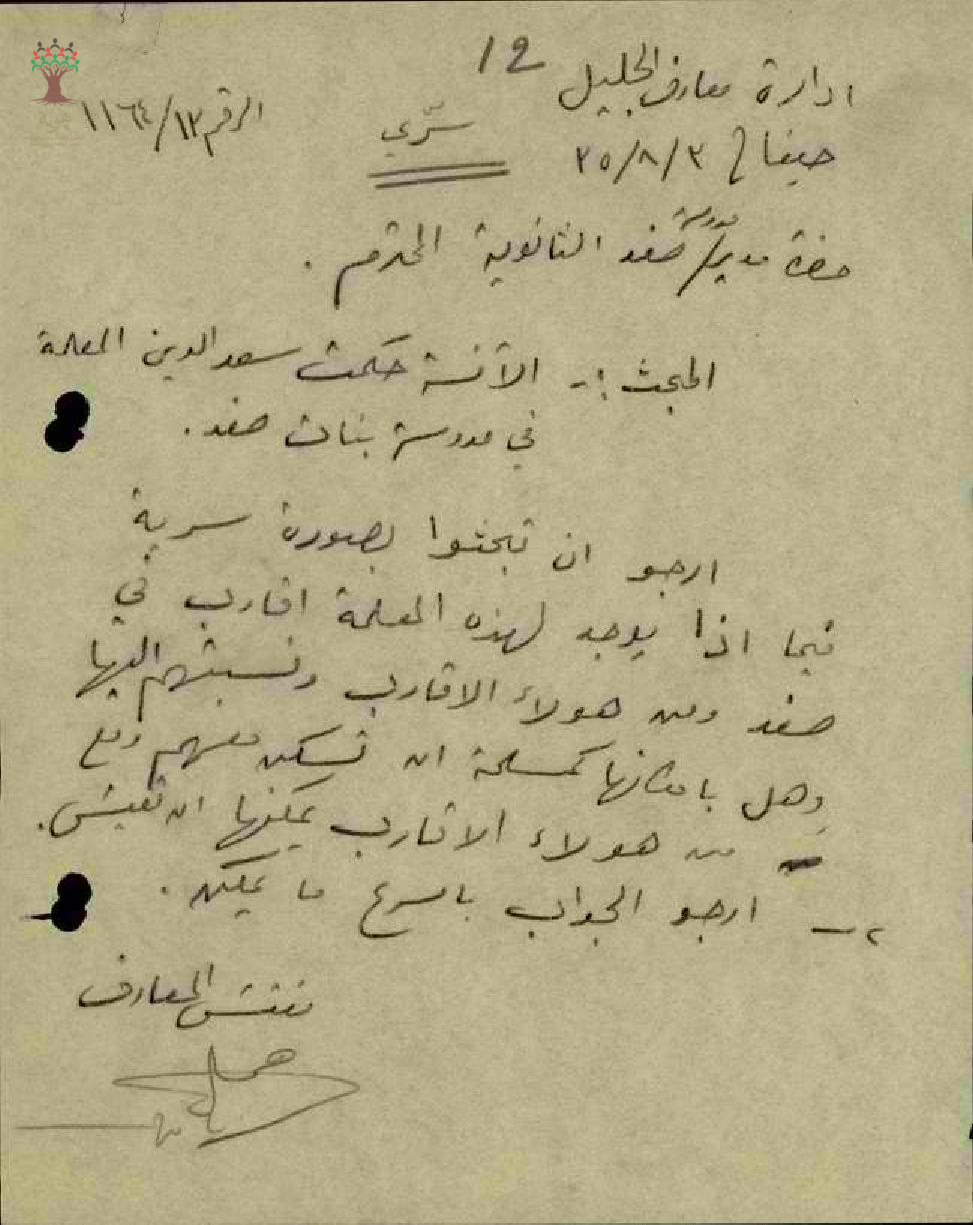 12
ادارة معارف الجليل
حيفا في ٣/٨/٣٥
سرّي
الرقم ١١٦٤/١٣
حضرة مدير مدرسة صفد الثانوية المحترم .
المبحث :- الآنسة حكمت سعد الدين المعلمة
في مدرسة بنات صفد .
ارجو ان تبحثوا بصورة سرية
فيما اذا يوجد لهذه المعلمة اقارب في
صفد ومن هولاء الاقارب ونسبتهم اليها
وهل بامكانها كمسلمة ان تسكن معهم ومع
من هولاء الاقارب يمكنها ان تعيش .
٢ - ارجو الجواب باسرع ما يمكن .
مفتش المعارف